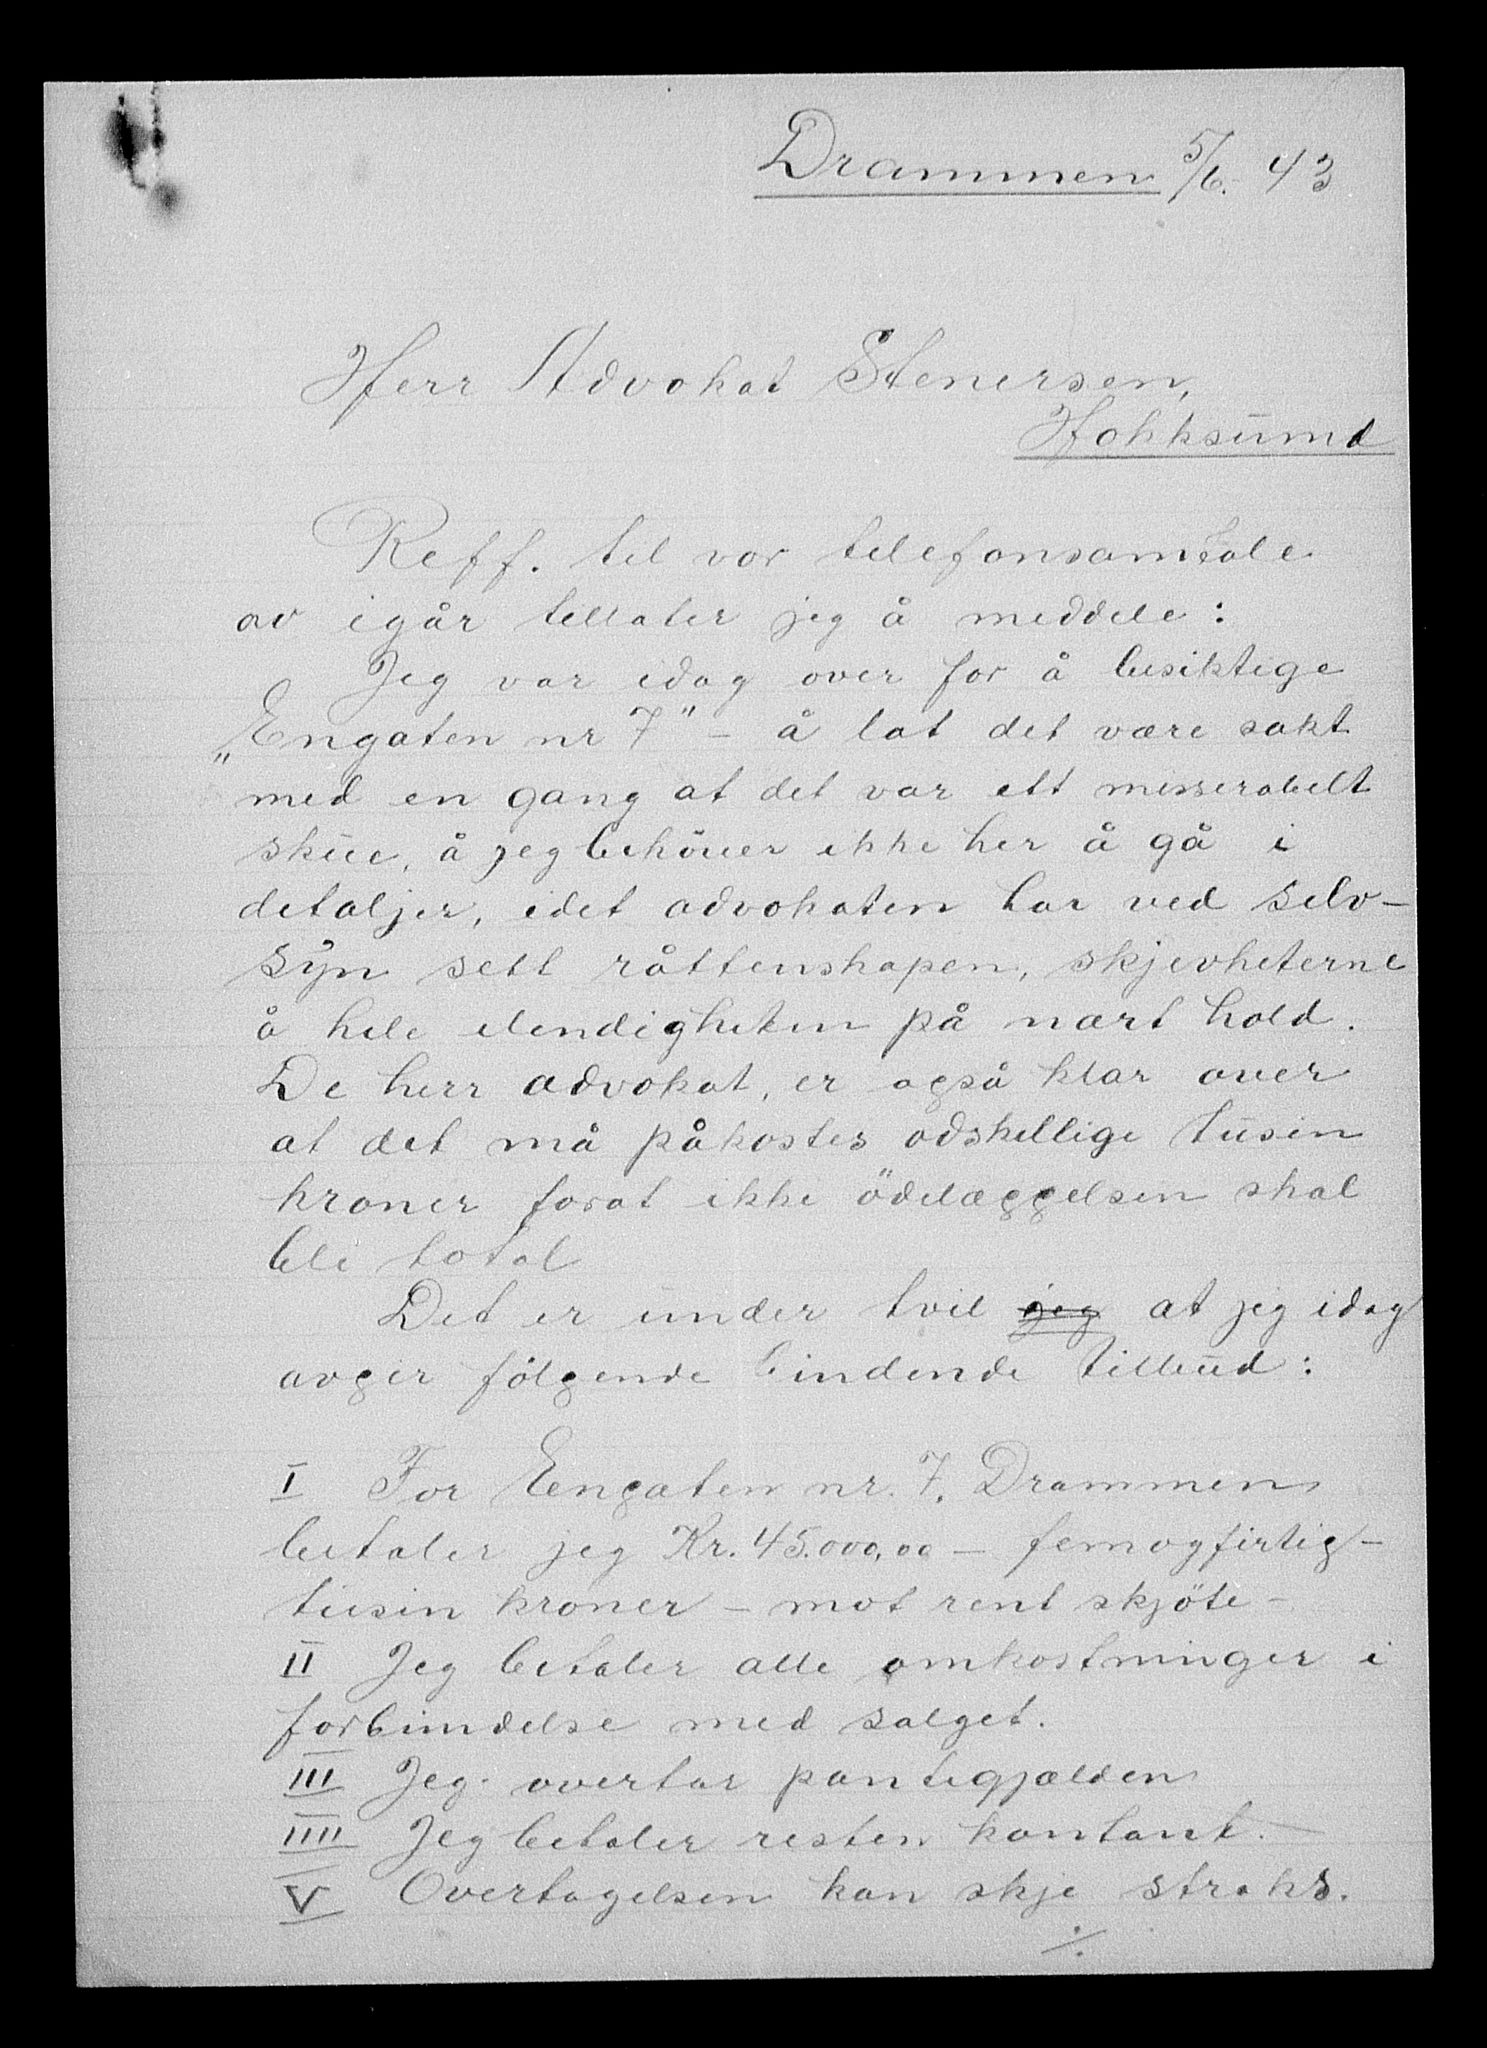 Drammen 5/6. 43
Herr Advokat Stenersen,
Hokksund
Reff. til vor telefonsamtale
av igår tillater jeg å meddele:
Jeg var idag over for å besiktige
„Engaten nr 7" – å lat det være sakt
med en gang at det var ett messerabelt
skue, å jeg behöver ikke her å gå i
detaljer, idet advokaten har ved selv-
syn sett råttenskapen, skjevheterne
å hele elendigheten på nært hold.
De herr advokat, er også klar over
at det må påkostes adskellige tusin
kroner forat ikke ödelæggelsen skal
bli total
Det er under tvil jeg at jeg idag
avgir følgende bindende tilbud:
I For Eengaten nr. 7. Drammen
betaler jeg Kr. 45.000,00 – femogfirtig-
tusin kroner – mot rent skjöte –
II Jeg betaler alle omkostninger i
forbindelse med salget.
III Jeg overtar pantegjælden
IIII Jeg betaler resten kontant. –
V Overtagelsen kan skje straks.
./.